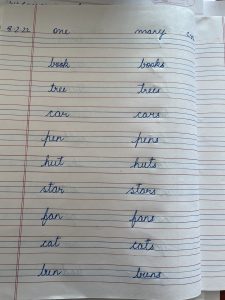 8.2.22 one many
book books
tree trees
car cars
pen pens
hut huts
star stars
fan fans
cat cats
bun buns